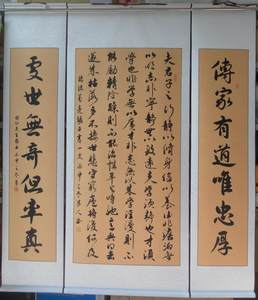 傳家有道唯忠厚
夫君子之行靜以修身儉以養德非澹泊無
以明志非寧靜無以致遠夫學須靜也才須
學也非學無以廣才非志無以成學淫慢則不
能勵精險躁則不能治性年與時馳意與日去
遂成枯落多不接世悲守窮廬將復何及
諸葛亮誡子書
處世無奇但率真